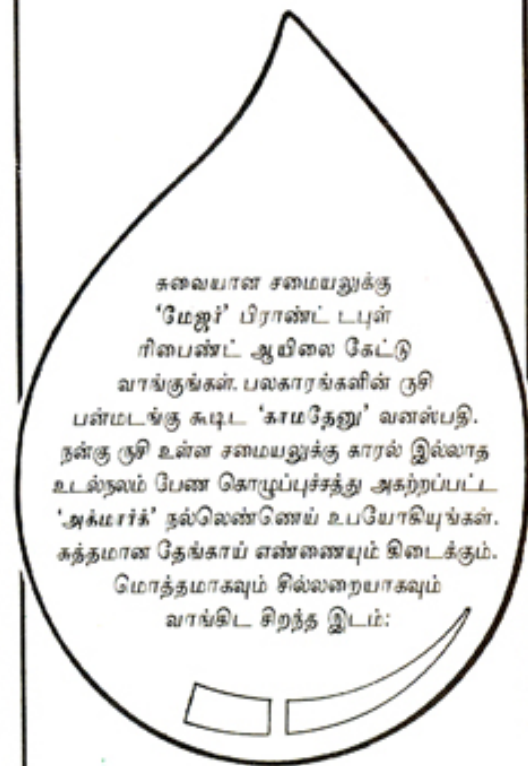 சுவையான சமையலுக்கு
‘மேஜர்’ பிராண்ட் டபுள்
ரிபைண்ட் ஆயிலை கேட்டு
வாங்குங்கள். பலகாரங்களின் ருசி
பன்மடங்கு கூடிட ‘காமதேனு’ வனஸ்பதி.
நன்கு ருசி உள்ள சமையலுக்கு காரல் இல்லாத
உடல்நலம் பேண கொழுப்புச்சத்து அகற்றப்பட்ட
‘அக்மார்க்’ நல்லெண்ணெய் உபயோகியுங்கள்.
சுத்தமான தேங்காய் எண்ணையும் கிடைக்கும்.
மொத்தமாகவும் சில்லறையாகவும்
வாங்கிட சிறந்த இடம்: